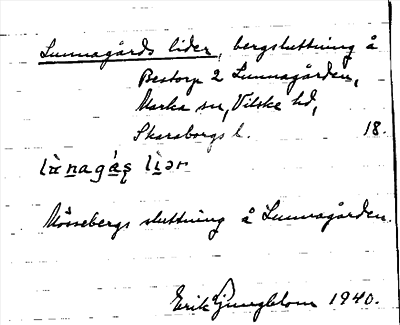 Lunnagårds lider, bergsluttning å
Bestorp 2 Lunnagården,
Marka sn, Vilske hd,
Skaraborgs l. 18.
lù̀nagá̱s̨ lì̱ər
Mössebergs sluttning å Lunnagården.
Erik Ljungblom 1940.